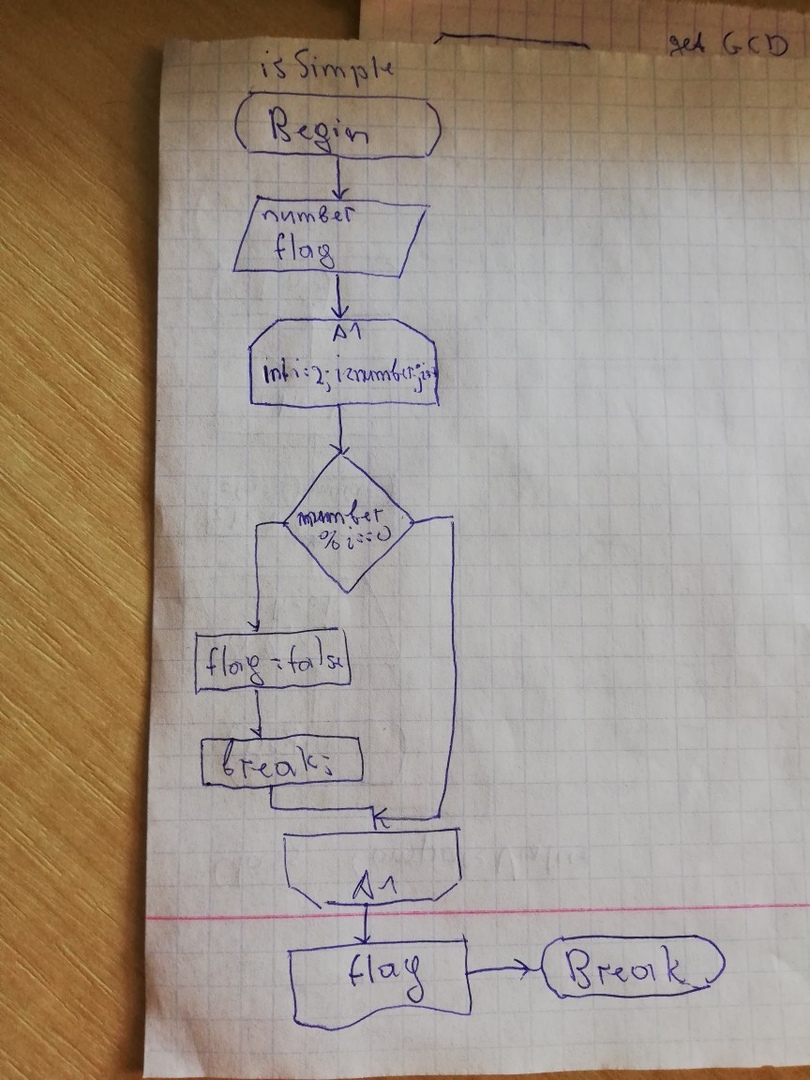 get GCD
isSimple
Begin
number
flag
A1
int i=2; i<number; i++
number
% i==0
flag=false
break;
A1
flag
Break